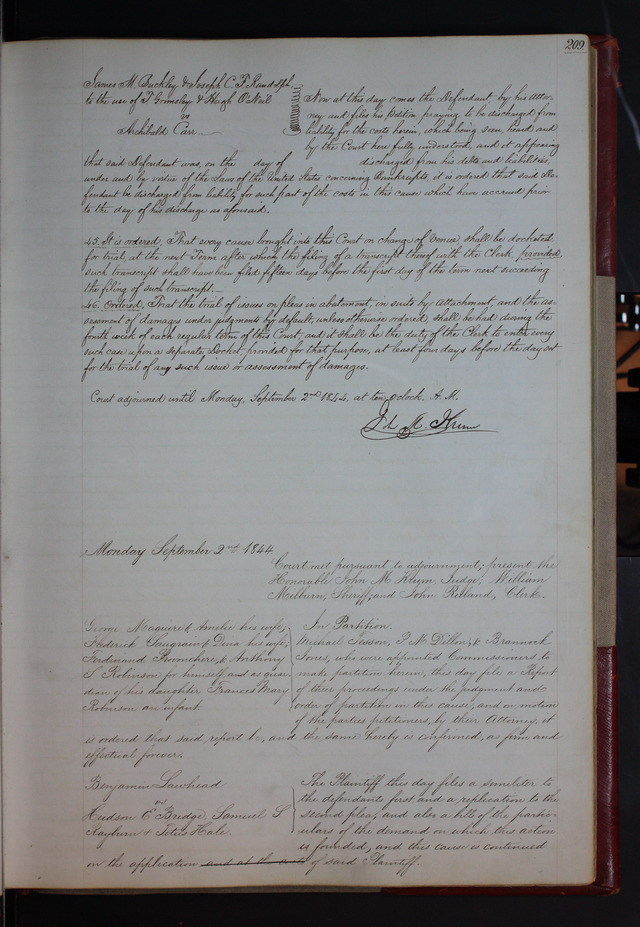 209
James M. Buckley & Joseph C. F. Randolph
to the use of T Grimsley & Hugh O'Neil
vs
Archibald Carr
Now at this day comes the Defendant by his Attor-
ney and files his petition praying to be discharged from
liability for the costs herein, which being seen, heard and
by the Court here fully understood, and it appearing
that said Defendant was, on the day of discharged from his debts and liabilities,
under and by virtue of the Laws of the United States concerning Bankrupts, it is ordered that said De-
fendant be discharged from liability for such part of the costs in this cause which have accrued prior
to the day of his discharge as aforesaid.
45. It is ordered, That every cause brought into this Court on change of Venue, shall be docketed
for trial, at the next Term after which the filing of a transcript thereof with the Clerk, provided,
such transcript shall have been filed fifteen days before the first day of the term next succeeding
the filing of such transcript.
46. Ordered, That the trial of issues on pleas in abatement, on suits by attachment, and the as-
sessment of damages under judgments by default, unless otherwise ordered, shall be had during the
fourth week of each regular term of this Court, and it shall be the duty of the Clerk to enter every
such case upon a separate Docket, provided for that purpose, at least four days before the day set
for the trial of any such issue or assessment of damages.
Court adjourned until Monday, September 2nd 1844, at ten o'clock, A. M.
Jno. M. Krum
Monday September 2nd 1844
Court met pursuant to adjournment; present the
Honorable John M Krum Judge; William
Milburn, Sheriff; and John Ruland, Clerk.
George Maguire & Amelie his wife,
Frederick Saugrain & Dena his wife,
Ferdinand & Anthony
S Robinson for himself and as guar-
dian of his daughter Frances Mary
Robinson an infant
In Partition.
Michael Sisson, P. N. Dillon, & Brannock
Jones, who were appointed Commissioners to
make partition herein, this day file a Report
of their proceedings under the judgment and
order of partition in this cause, and on motion
of the parties petitioners, by their Attorney, it
is ordered that said report be, and the same hereby is confirmed, as firm and
effectual forever.
Benjamin Lawhead
vs
Hudson E Bridge, Samuel S
Rayburn & Titus Hale.
The Plaintiff this day files a similiter to
the defendants first and a replication to the
second plea, and also a bill of the partic-
ulars of the demand on which this action
is founded, and this cause is continued
on the application and at the costs of said Plaintiff.